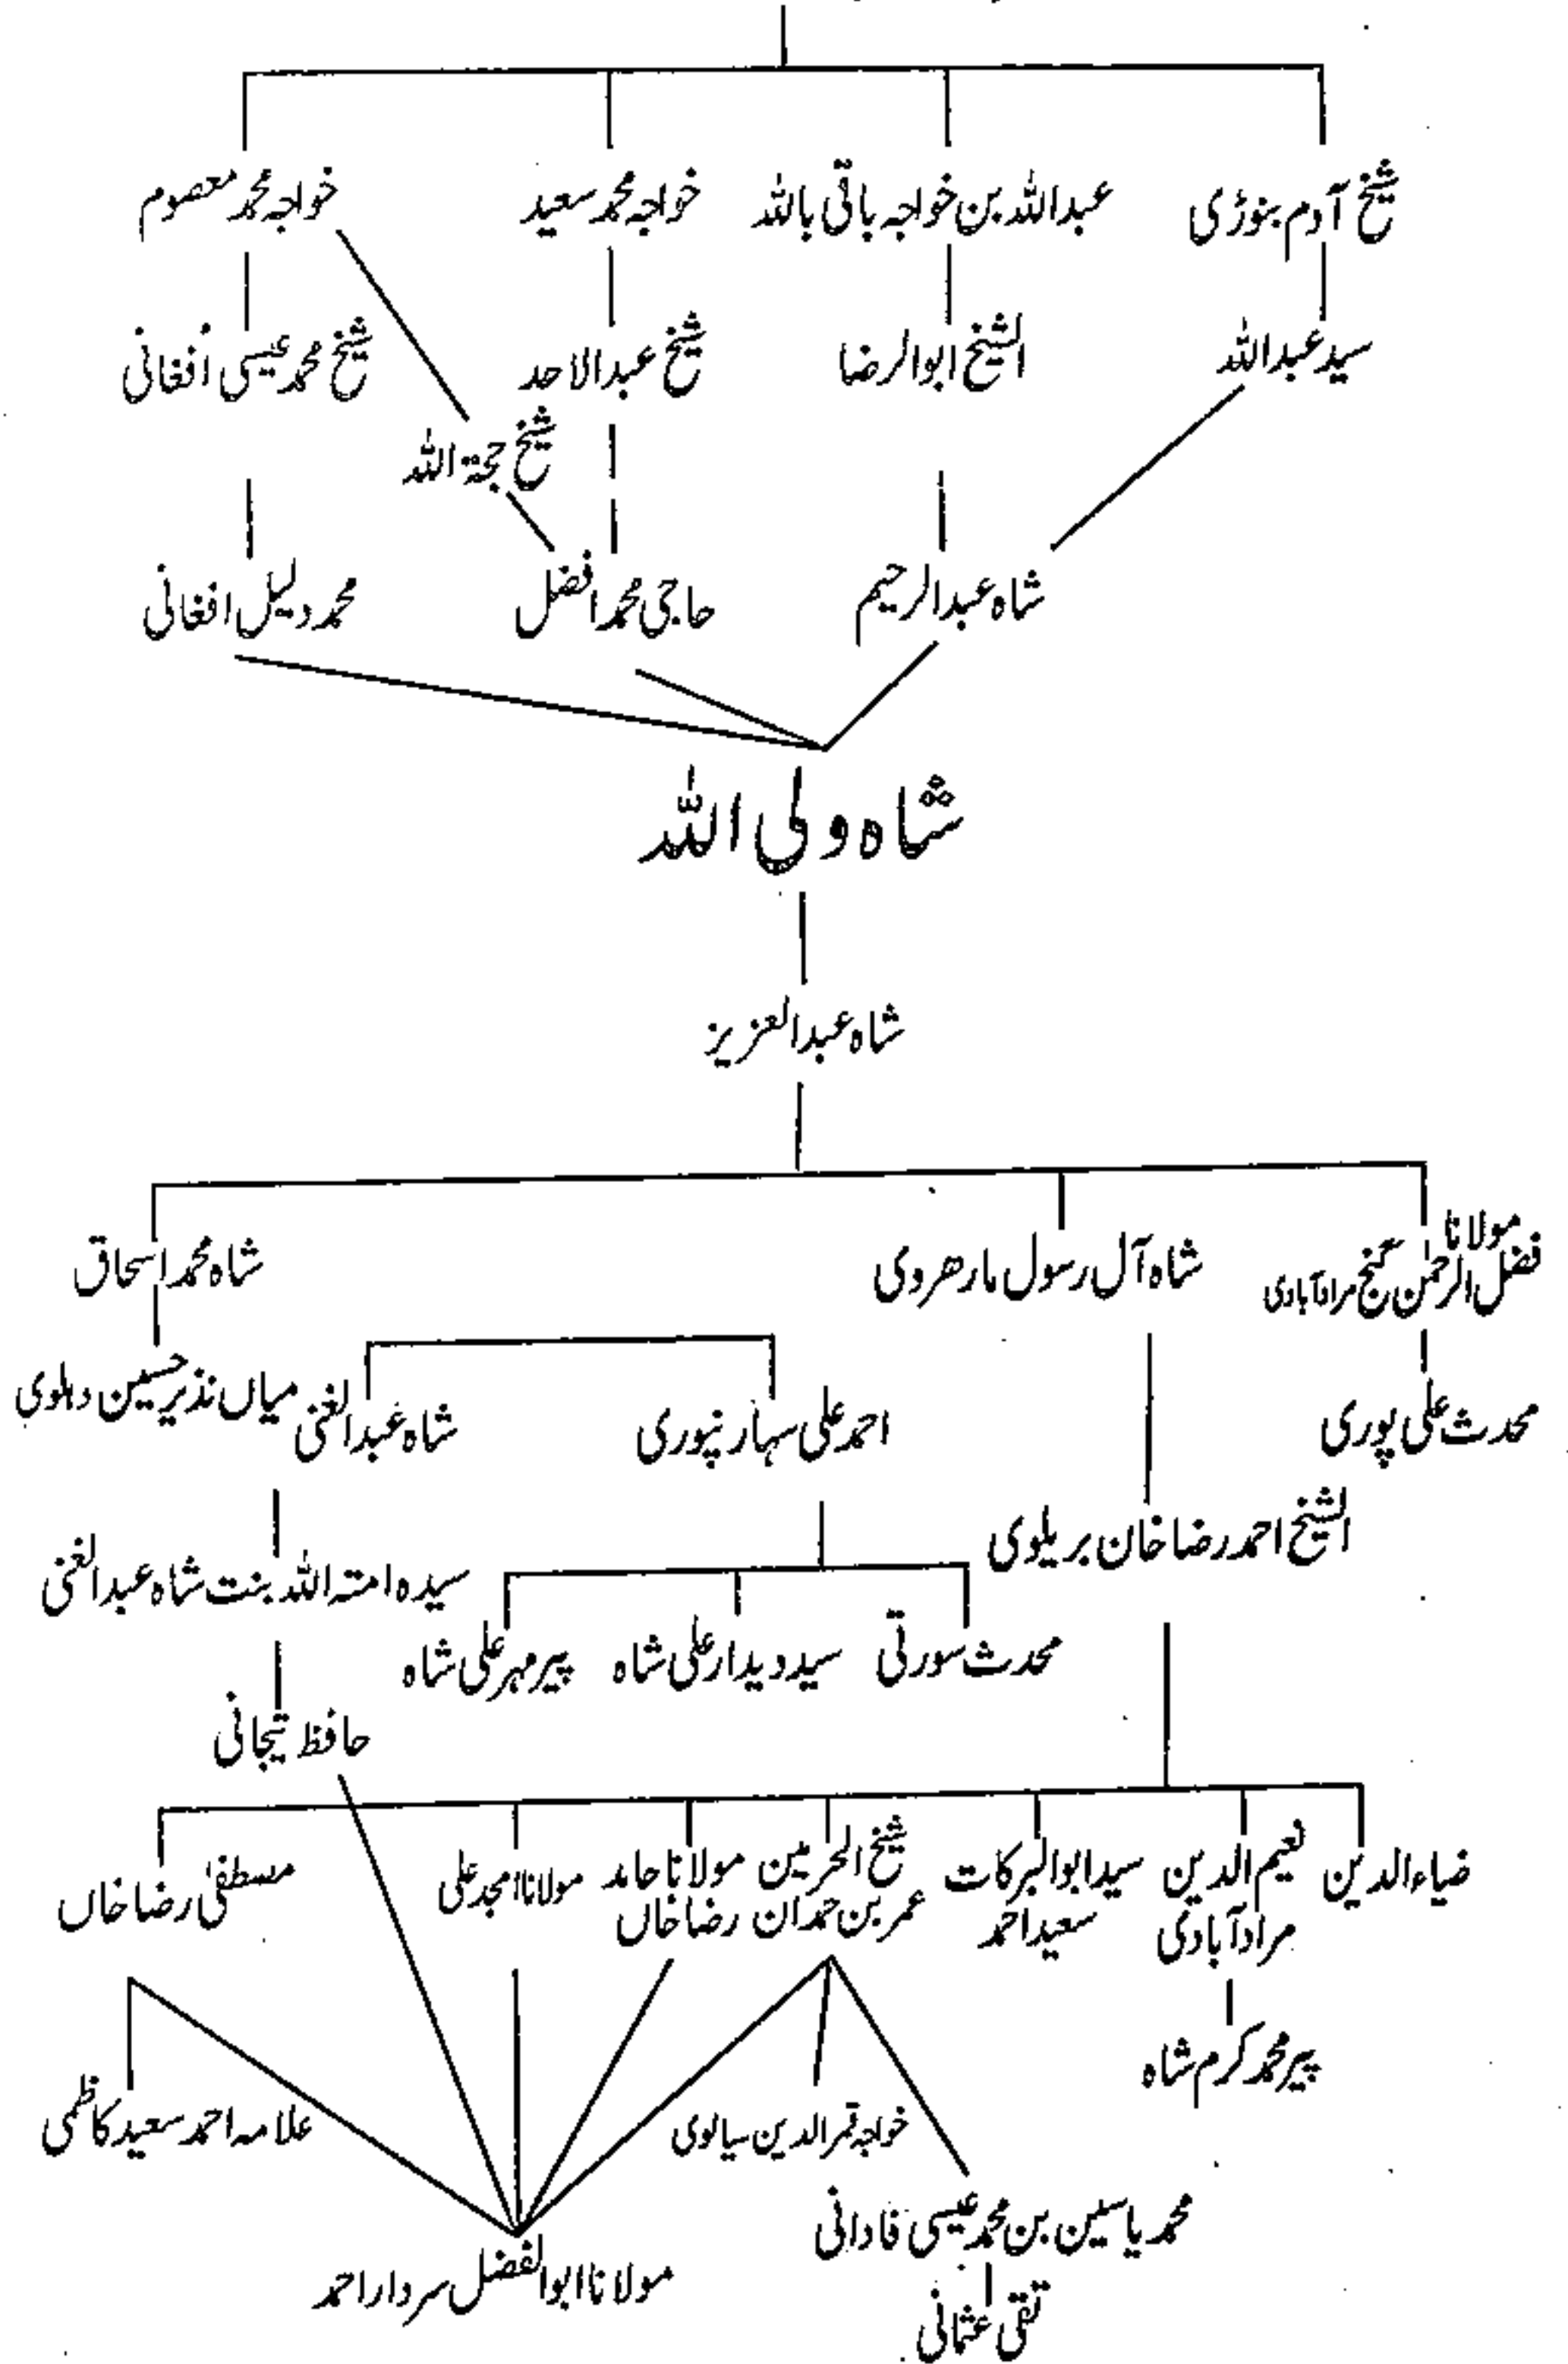 شیخ آدم بنوڑی
عبداللہ بن خواجہ باقی باللہ
خواجہ محمد سعید
خواجہ محمد معصوم
سید عبداللہ
الشیخ ابوالرضا
شیخ عبدالاحد
شیخ محمد عیسی افغانی
شیخ حجۃ اللہ
شاہ عبدالرحیم
حاجی محمد افضل
محمد دلیل افغانی
شاہ ولی اللہ
شاہ عبدالعزیز
مولانا
فضل الرحمٰن گنج مرادآبادی
شاہ آل رسول مارھروی
شاہ محمد اسحاق
محدث علی پوری
احمد علی سہارنپوری
شاہ عبدالغنی
میاں نذیر حسین دہلوی
الشیخ احمد رضا خان بریلوی
سیدہ امتہ اللہ بنت شاہ عبدالغنی
محدث سورتی
سید دیدار علی شاہ
پیر مہر علی شاہ
حافظ تیجانی
ضیاء الدین
نعیم الدین
مرادآبادی
سید ابوالبرکات
سعید احمد
شیخ الحرمین
عمر بن حمدان
مولانا حامد
رضا خاں
مولانا امجد علی
مسطفٰی رضا خاں
پیر محمد کرم شاہ
خواجہ قمر الدین سیالوی
علامہ احمد سعید کاظمی
محمد یاسین بن محمد عیسی فادانی
مولانا ابوالفضل سردار احمد
تقی عثمانی